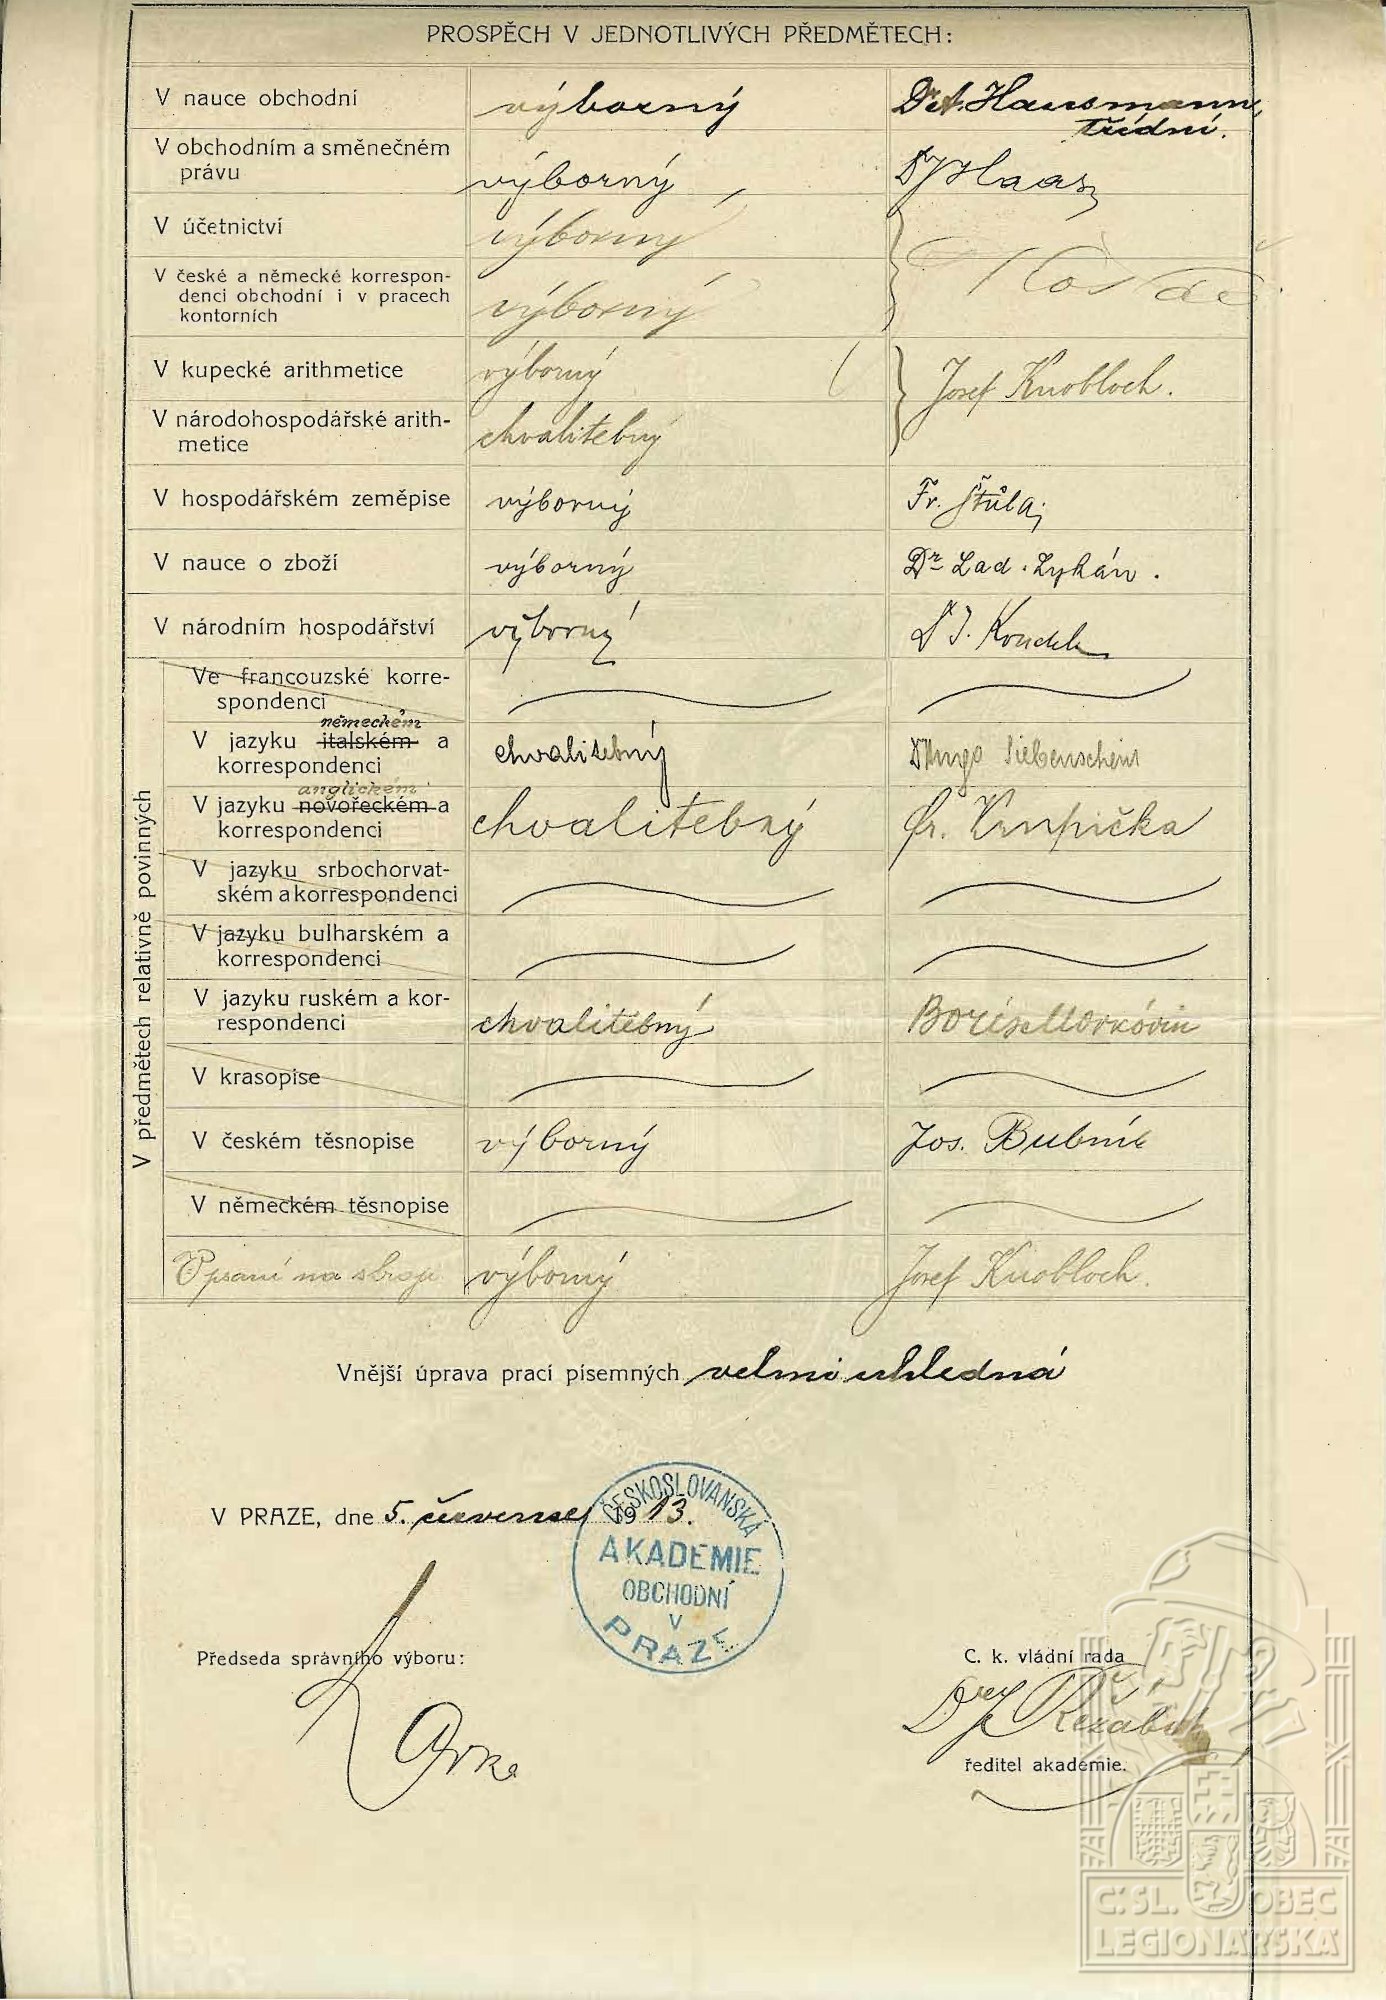 PROSPĚCH V JEDNOTLIVÝCH PŘEDMĚTECH:
V nauce obchodní výborný Dr. A. Hausmann,
třídní.
V obchodním a směnečném
právu výborný Dr J Haas
V účetnictví výborný
V české a německé korrespon-
denci obchodní i v pracech
kontorních výborný
V kupecké arithmetice výborný Josef Knobloch.
V národohospodářské arith-
metice chvalitebný
V hospodářském zeměpise výborný Fr.
V nauce o zboží výborný Dr. Lad. Zykán.
V národním hospodářství výborný Dr J.
V předmětech relativně povinných
Ve francouzské korre-
spondenci
německém
V jazyku italském a
korrespondenci chvalitebný Dr Hugo Siebenschein
anglickém
V jazyku novořeckém a
korrespondenci chvalitebný Fr. Krupička
V jazyku srbochorvat-
ském a korrespondenci
V jazyku bulharském a
korrespondenci
V jazyku ruském a kor-
respondenci chvalitebný Boris Morkovin
V krasopise
V českém těsnopise výborný Jos. Bubník
V německém těsnopise
V psaní na stroji výborný Josef Knobloch.
Vnější úprava prací písemných velmi úhledná
V PRAZE, dne 5. července 1913.
ČESKOSLOVANSKÁ
AKADEMIE
OBCHODNÍ
V
PRAZE
Předseda správního výboru:
C. k. vládní rada
Dr J Řežábek
ředitel akademie.
Č.SL. OBEC
LEGIONÁŘSKÁ